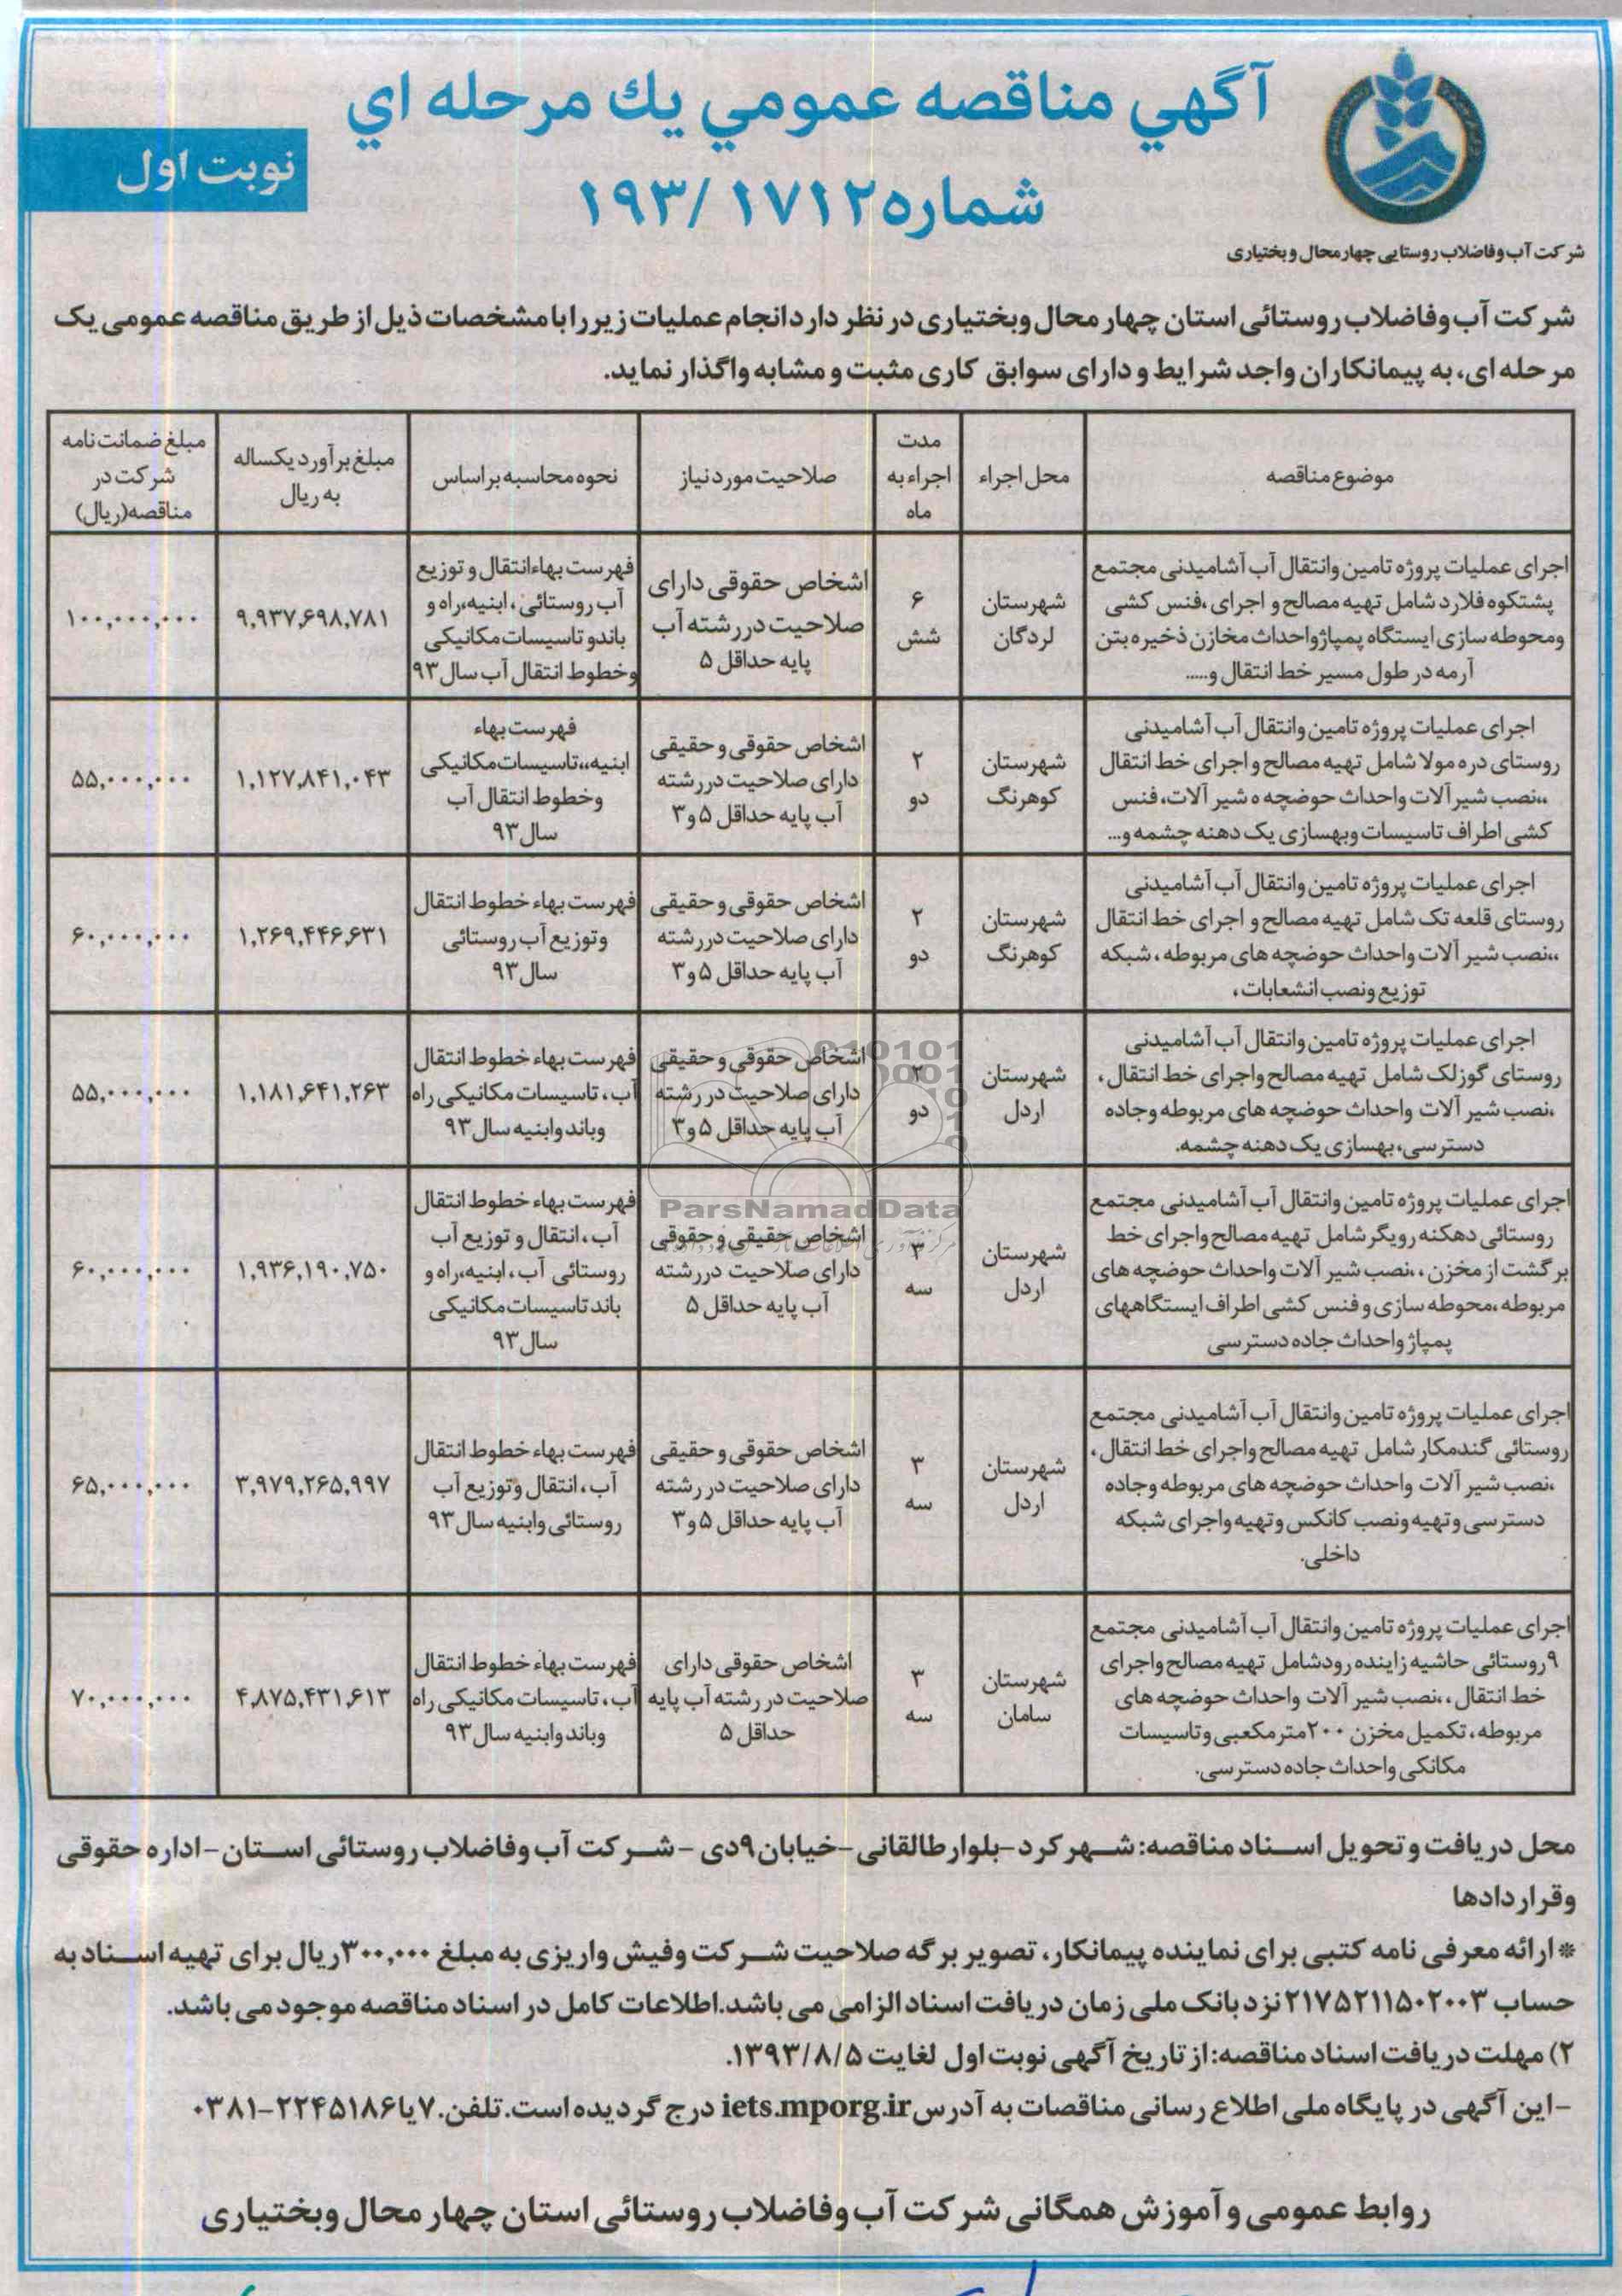 آگهي مناقصه عمومي يك مرحله اي
شماره ۱۷۱۲ /۱۹۳
نوبت اول
شركت آب و فاضلاب روستایی چهارمحال و بختیاری
شرکت آب و فاضلاب روستائی استان چهار محال وبختیاری در نظر دارد انجام عملیات زیر را با مشخصات ذیل از طریق مناقصه عمومی یک
مرحله ای، به پیمانکاران واجد شرایط و دارای سوابق کاری مثبت و مشابه واگذار نماید.
موضوع مناقصه
محل اجراء
مدت
اجراء به
ماه
صلاحیت مورد نیاز
نحوه محاسبه بر اساس
مبلغ برآورد یکساله
به ریال
مبلغ ضمانت نامه
شرکت در
مناقصه(ریال)
اجرای عملیات پروژه تامین وانتقال آب آشامیدنی مجتمع
پشتکوه فلارد شامل تهیه مصالح و اجرای ،فنس کشی
ومحوطه سازی ایستگاه پمپاژواحداث مخازن ذخیره بتن
آرمه در طول مسیر خط انتقال و.....
شهرستان
لردگان
۶
شش
اشخاص حقوقی دارای
صلاحیت دررشته آب
پایه حداقل ۵
فهرست بهاءانتقال و توزیع
آب روستائی، ابنیه،راه و
باندو تاسیسات مکانیکی
وخطوط انتقال آب سال ۹۳
۹,۹۳۷,۶۹۸,۷۸۱
۱۰۰,۰۰۰,۰۰۰
اجرای عملیات پروژه تامین وانتقال آب آشامیدنی
روستای دره مولا شامل تهیه مصالح و اجرای خط انتقال
،،نصب شیرآلات واحداث حوضچه ه شیر آلات، فنس
کشی اطراف تاسیسات وبهسازی یک دهنه چشمه و...
شهرستان
کوهرنگ
۲
دو
اشخاص حقوقی و حقیقی
دارای صلاحیت دررشته
آب پایه حداقل ۵و۳
فهرست بهاء
ابنیه،،تاسیسات مکانیکی
وخطوط انتقال آب
سال ۹۳
۱,۱۲۷,۸۴۱,۰۴۳
۵۵,۰۰۰,۰۰۰
اجرای عملیات پروژه تامین وانتقال آب آشامیدنی
روستای قلعه تک شامل تهیه مصالح و اجرای خط انتقال
،،نصب شیر آلات واحداث حوضچه های مربوطه ، شبکه
توزیع ونصب انشعابات،
شهرستان
کوهرنگ
۲
دو
اشخاص حقوقی و حقیقی
دارای صلاحیت دررشته
آب پایه حداقل ۵و۳
فهرست بهاء خطوط انتقال
وتوزیع آب روستائی
سال ۹۳
۱,۲۶۹,۴۴۶,۶۳۱
۶۰,۰۰۰,۰۰۰
اجرای عملیات پروژه تامین وانتقال آب آشامیدنی
روستای گوزلک شامل تهیه مصالح واجرای خط انتقال ،
،نصب شیر آلات واحداث حوضچه های مربوطه وجاده
دسترسی، بهسازی یک دهنه چشمه.
شهرستان
اردل
۲
دو
اشخاص حقوقی و حقیقی
دارای صلاحیت دررشته
آب پایه حداقل ۵و۳
فهرست بهاء خطوط انتقال
آب ، تاسیسات مکانیکی راه
وباند وابنیه سال ۹۳
۱,۱۸۱,۶۴۱,۲۶۳
۵۵,۰۰۰,۰۰۰
ParsNamadData
اجرای عملیات پروژه تامین وانتقال آب آشامیدنی مجتمع
روستائی دهکنه رویگر شامل تهیه مصالح واجرای خط
برگشت از مخزن ، ،نصب شیر آلات واحداث حوضچه های
مربوطه ،محوطه سازی و فنس کشی اطراف ایستگاههای
پمپاژ واحداث جاده دسترسی
شهرستان
اردل
۳
سه
اشخاص حقیقی و حقوقی
دارای صلاحیت دررشته
آب پایه حداقل ۵
فهرست بهاء خطوط انتقال
آب ، انتقال و توزیع آب
روستائی آب ، ابنیه،راه و
باند تاسیسات مکانیکی
سال ۹۳
۱,۹۳۶,۱۹۰,۷۵۰
۶۰,۰۰۰,۰۰۰
اجرای عملیات پروژه تامین وانتقال آب آشامیدنی مجتمع
روستائی گندمکار شامل تهیه مصالح واجرای خط انتقال ،
،نصب شیر آلات واحداث حوضچه های مربوطه وجاده
دسترسی وتهیه ونصب کانکس وتهیه واجرای شبکه
داخلی.
شهرستان
اردل
۳
سه
اشخاص حقوقی و حقیقی
دارای صلاحیت دررشته
آب پایه حداقل ۵و۳
فهرست بهاء خطوط انتقال
آب ، انتقال وتوزیع آب
روستائی وابنیه سال ۹۳
۳,۹۷۹,۲۶۵,۹۹۷
۶۵,۰۰۰,۰۰۰
اجرای عملیات پروژه تامین وانتقال آب آشامیدنی مجتمع
۹روستائی حاشیه زاینده رودشامل تهیه مصالح واجرای
خط انتقال ، ،نصب شیر آلات واحداث حوضچه های
مربوطه ، تکمیل مخزن ۲۰۰متر مکعبی وتاسیسات
مکانکی واحداث جاده دسترسی.
شهرستان
سامان
۳
سه
اشخاص حقوقی دارای
صلاحیت دررشته آب پایه
حداقل ۵
فهرست بهاء خطوط انتقال
آب ، تاسیسات مکانیکی راه
وباند وابنیه سال ۹۳
۴,۸۷۵,۴۳۱,۶۱۳
۷۰,۰۰۰,۰۰۰
محل دریافت و تحویل اسناد مناقصه: شهر کرد-بلوار طالقانی-خیابان ۹دی - شرکت آب و فاضلاب روستائی استان-اداره حقوقی
وقراردادها
*ارائه معرفی نامه کتبی برای نماینده پیمانکار، تصویر برگه صلاحیت شرکت وفیش واریزی به مبلغ ۳۰۰,۰۰۰ریال برای تهیه اسناد به
حساب ۲۱۷۵۲۱۱۵۰۲۰۰۳ نزد بانک ملی زمان دریافت اسناد الزامی می باشد.اطلاعات کامل در اسناد مناقصه موجود می باشد.
۲) مهلت دریافت اسناد مناقصه: از تاریخ آگهی نوبت اول لغایت ۱۳۹۳/۸/۵.
-این آگهی در پایگاه ملی اطلاع رسانی مناقصات به آدرس iets.mporg.ir درج گردیده است. تلفن. ۷یا۲۲۴۵۱۸۶-۰۳۸۱
روابط عمومی و آموزش همگانی شرکت آب وفاضلاب روستائی استان چهار محال وبختیاری